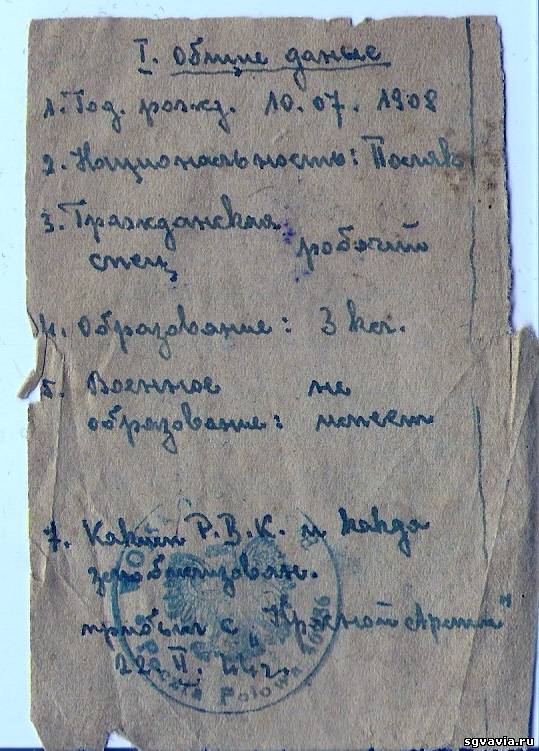 I. Общие даные
1. Год. рожд. 10.07.1908
2. Национальность: Поляк
3. Гражданская робочий
спец
4. Образование: 3 кл.
5. Военное не
образование: имеет
7. Каким Р.В.К. и когда
замобилизован.
прибыл с „Красной Армии"
22. II. 44 г.
Poczta Polowa
sgvavia.ru